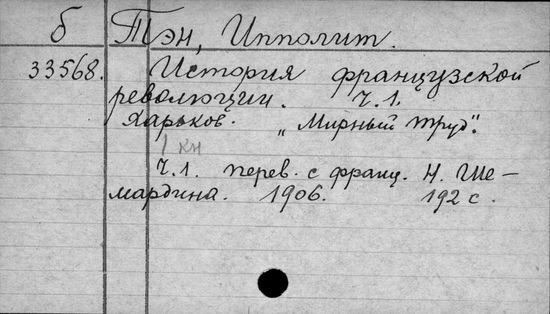 б Тэн, Ипполит.
33568. История французской
революции. Ч.1.
Харьков. „Мирный труд".
1 кн
Ч.1. перев. с франц. Н. Ше-
мардина. 1906. 192 с.